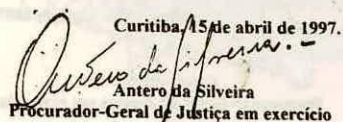 Curitiba, 15 de abril de 1997.
Antero da Silveira
Antero da Silveira
Procurador-Geral de Justiça em exercício